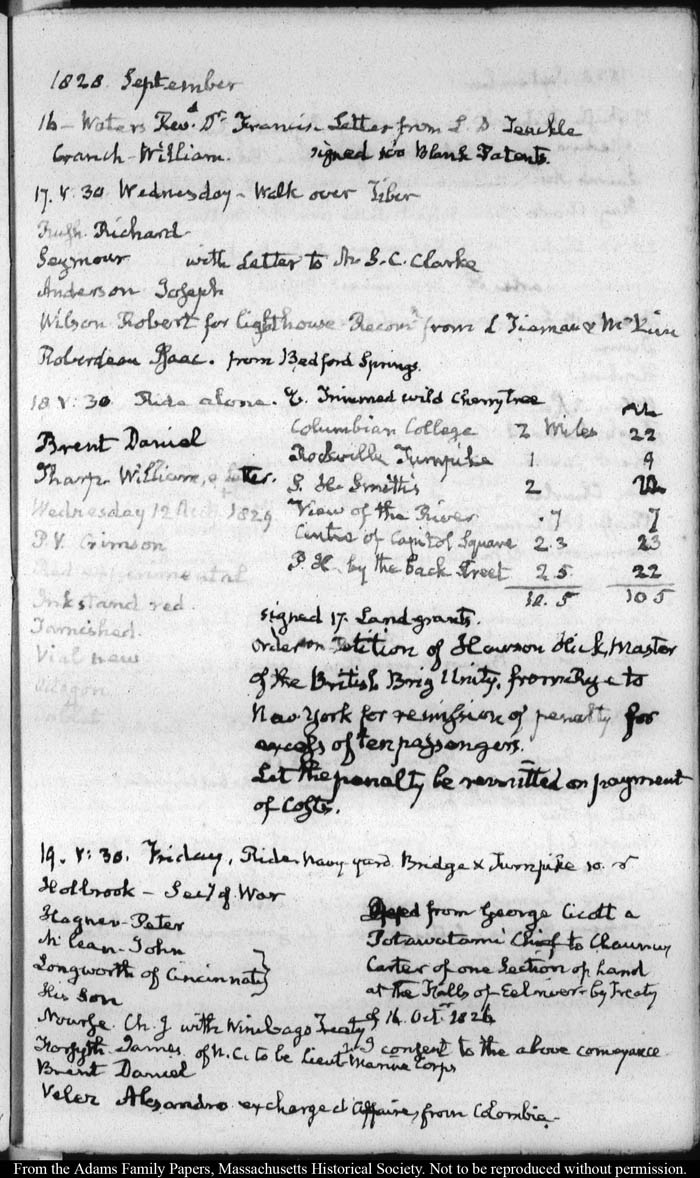 1828. September
16 – Waters Revd. Dr. Francis. Letter from L. D. Teackle
Cranch – William. signed 100 Blank Patents.
17. V. 30. Wednesday – Walk over Tiber
Rush. Richard
Seymour with Letter to Mr S. C. Clarke
Anderson Joseph
Wilson Robert for lighthouse. Recomd. from L Tiernan & McKim
Roberdeau Isaac. from Bedford Springs.
18 V: 30 Ride alone. Trimmed wild Cherry tree
Brent Daniel Columbian College 2 Miles 22
Tharp. William, & Letter. Rockville Turnpike 1 9
S. H. Smith's 2
Wednesday 12 1829 View of the River .7 7
P. V. Crimson Centre of Capitol Square 2.3 23
Red experimental P. H. by the back Street 2.5 22
Inkstand red. 10.5 105
Tarnished. signed 17. Land grants.
Vial new order on Petition of Howson Hick, Master
Octagon of the British Brig Unity, from to
New York for remission of penalty for
excess of ten passengers.
Let the penalty be remitted on payment
of Costs.
19. V: 30. Friday, Ride Navy yard Bridge & Turnpike
Holbrook – Secy of War
Hagner. Peter Deed from George Cicott a
McLean. John Potawatami Chief to Chauncey
Longworth of Cincinnati Carter of one Section of Land
His Son at the Falls of Eel river – by Treaty
Nourse. Ch. J with Winebago Treaty of 16. Octr. 1826
Forsyth. James. of N. C. to be Lieut Marine Corps I consent to the above conveyance
Brent Daniel
Velez Alesandro exchargé d'affaires from Colombia.
From the Adams Family Papers, Massachusetts Historical Society. Not to be reproduced without permission.